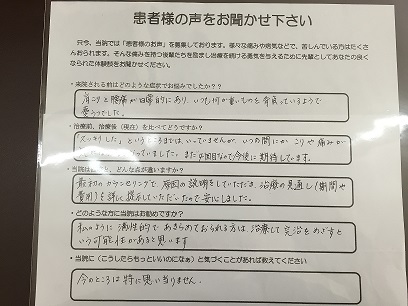 患者様の声をお聞かせ下さい
只今、当院では「患者様のお声」を募集しております。様々な痛みや病気などで、苦しんでいる方はたくさん
おられます。そんな痛みを持つ後輩たちを励まし治療を続ける勇気を与えるために先輩としてあなたの良く
なられた体験談をお聞かせください。
・来院される前はどのような症状でお悩みでしたか??
肩こりと腰痛が日常的にあり、いつも何か重いものを背負っているようで
憂うつでした。
・治療前、治療後(現在)を比べてどうですか?
「スッキリした」というところまでは、いっていませんが、いつの間にか こりや痛みが
いました。まだ 回目なので今後に期待しています。
・当院は どんな点が違いますか?
最初のカウンセリングで、原因の説明をしていただき、治療の見通し(期間や
費用)を詳しく提示していただいたので安心しました。
・どのような方に当院はお勧めですか?
私のように慢性的で あきらめておられる方は、治療して完治をめざすと
いう可能性があると思います
・当院に(こうしたらもっといいのになぁ)と気づくことがあれば教えてください
今のところは特に思い当りません。